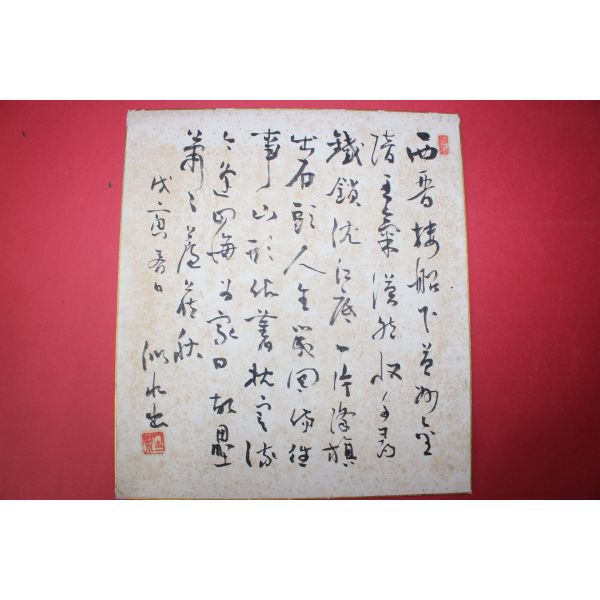 西晉樓船下益州金
陵王氣漠然收千尋
鐵鎖沈江底一片降旗
出石頭人生幾回傷往
事山形依舊枕寒流
今逢四海為家日故壘
蕭々蘆荻秋
戊寅春日
水書